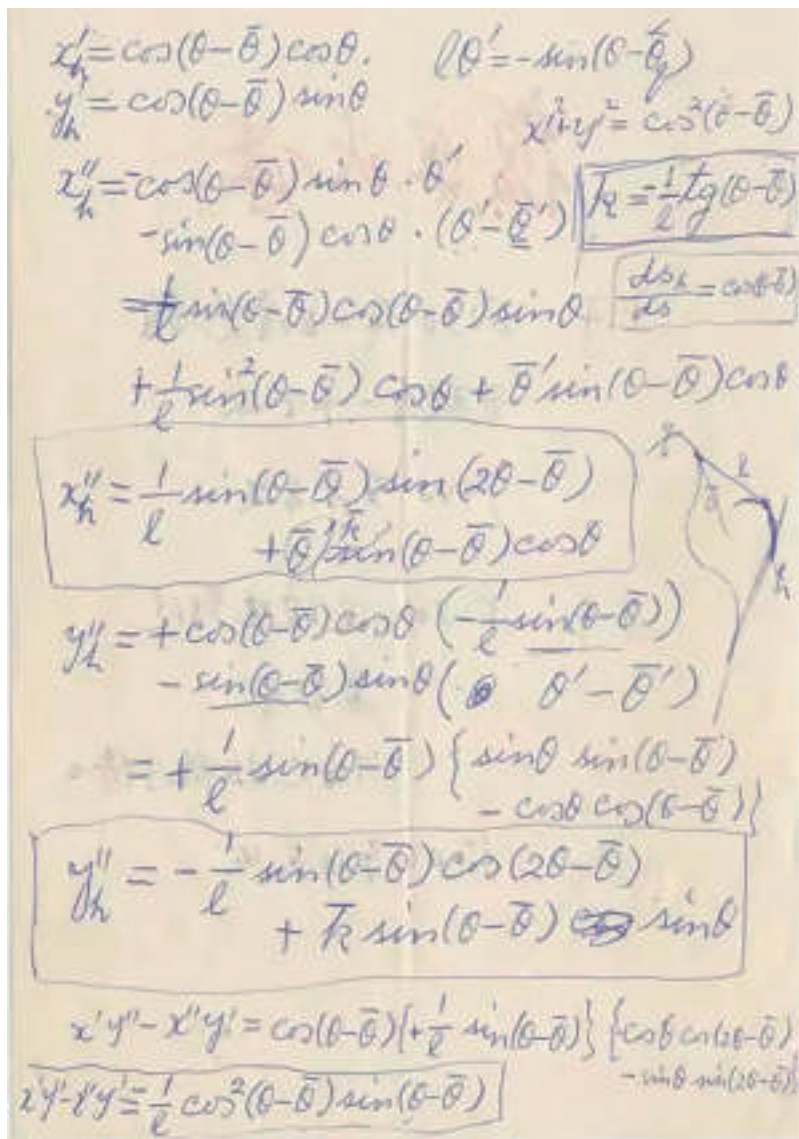 x'_h = cos(θ-θ̄)cosθ. lθ' = -sin(θ-θ̄)
y'_h = cos(θ-θ̄) sinθ
x'²+y'² = cos²(θ-θ̄)
x''_h = -cos(θ-θ̄) sinθ · θ'
-sin(θ-θ̄) cosθ · (θ'-θ̄')
k = -1/l tg(θ-θ̄)
= 1/l sin(θ-θ̄)cos(θ-θ̄)sinθ
ds_h/ds = cos(θ-θ̄)
+ 1/l sin²(θ-θ̄) cosθ + θ̄' sin(θ-θ̄)cosθ
x''_h = 1/l sin(θ-θ̄) sin(2θ-θ̄)
+ θ̄' k̄ sin(θ-θ̄)cosθ
l
h
y''_h = +cos(θ-θ̄)cosθ (-1/l sin(θ-θ̄))
- sin(θ-θ̄)sinθ( θ'-θ̄')
= + 1/l sin(θ-θ̄) { sinθ sin(θ-θ̄)
- cosθ cos(θ-θ̄) }
y''_h = - 1/l sin(θ-θ̄)cos(2θ-θ̄)
+ k̄ sin(θ-θ̄) sinθ
x'y''-x''y' = cos(θ-θ̄){+1/l sin(θ-θ̄)} {-cosθ cos(2θ-θ̄)
- sinθ sin(2θ-θ̄)}
x'y''-x''y' = -1/l cos²(θ-θ̄)sin(θ-θ̄)